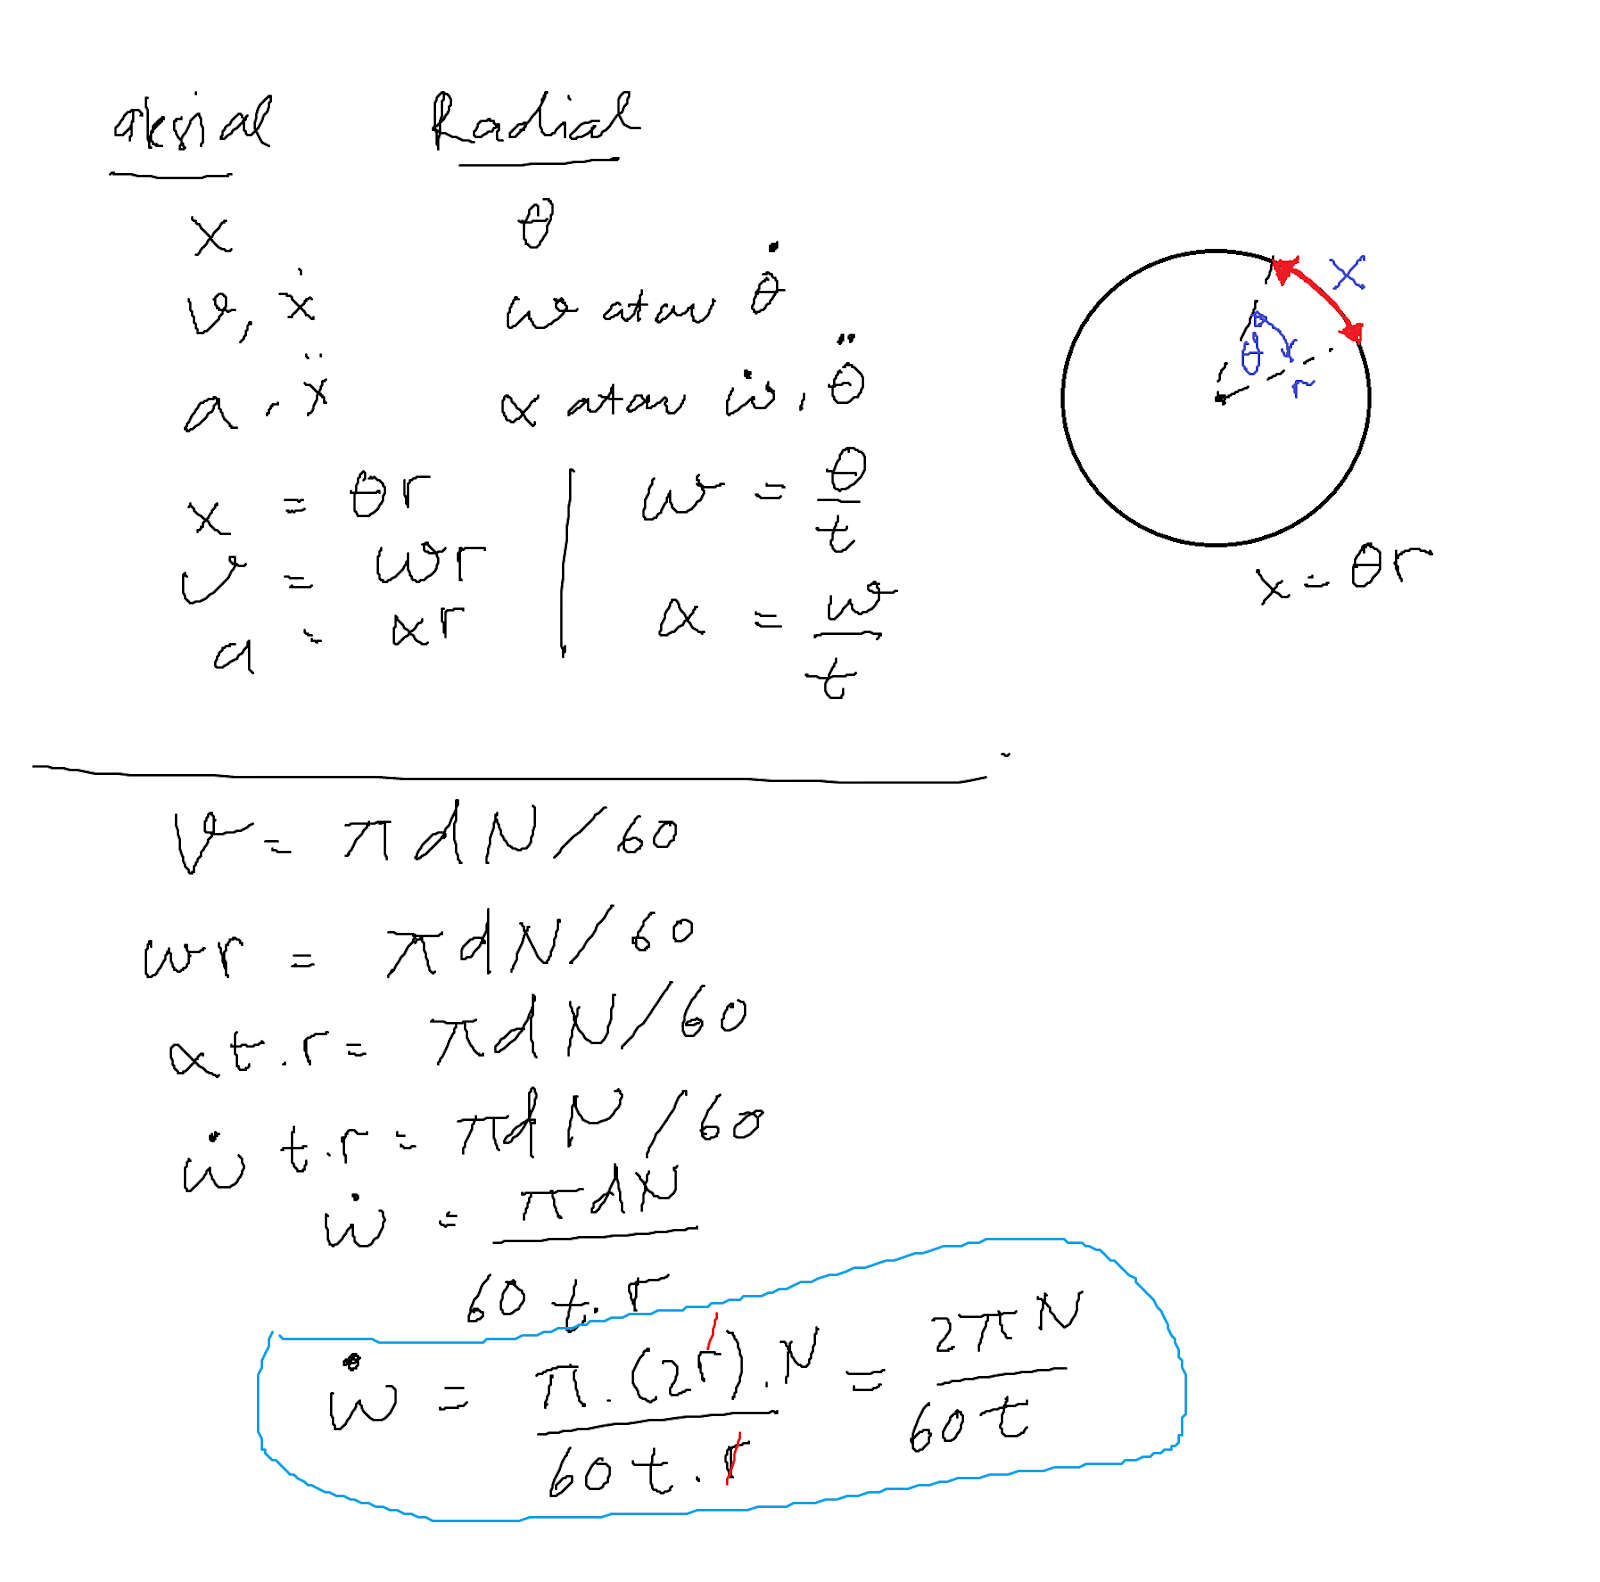 aksial Radial
x θ
v, ẋ ω atau θ̇
a, ẍ α atau ω̇, θ̈
x = θr | ω = θ/t
v = ωr
a = αr | α = ω/t
x
θ
r
x = θr
V = πdN/60
ωr = πdN/60
αt.r = πdN/60
ω̇ t.r = πdN/60
ω̇ = πdN / 60 t.r
ω̇ = π.(2r).N / 60t.r = 2πN / 60t